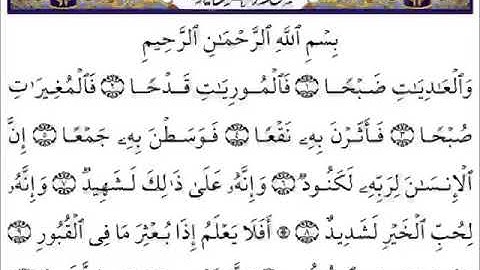 بِسْمِ ٱللَّهِ ٱلرَّحْمَـٰنِ ٱلرَّحِيمِ
وَٱلْعَـٰدِيَـٰتِ ضَبْحًا ١ فَٱلْمُورِيَـٰتِ قَدْحًا ٢ فَٱلْمُغِيرَٰتِ
صُبْحًا ٣ فَأَثَرْنَ بِهِۦ نَقْعًا ٤ فَوَسَطْنَ بِهِۦ جَمْعًا ٥ إِنَّ
ٱلْإِنسَـٰنَ لِرَبِّهِۦ لَكَنُودٌ ٦ وَإِنَّهُۥ عَلَىٰ ذَٰلِكَ لَشَهِيدٌ ٧ وَإِنَّهُۥ
لِحُبِّ ٱلْخَيْرِ لَشَدِيدٌ ٨ ۞ أَفَلَا يَعْلَمُ إِذَا بُعْثِرَ مَا فِى ٱلْقُبُورِ ٩